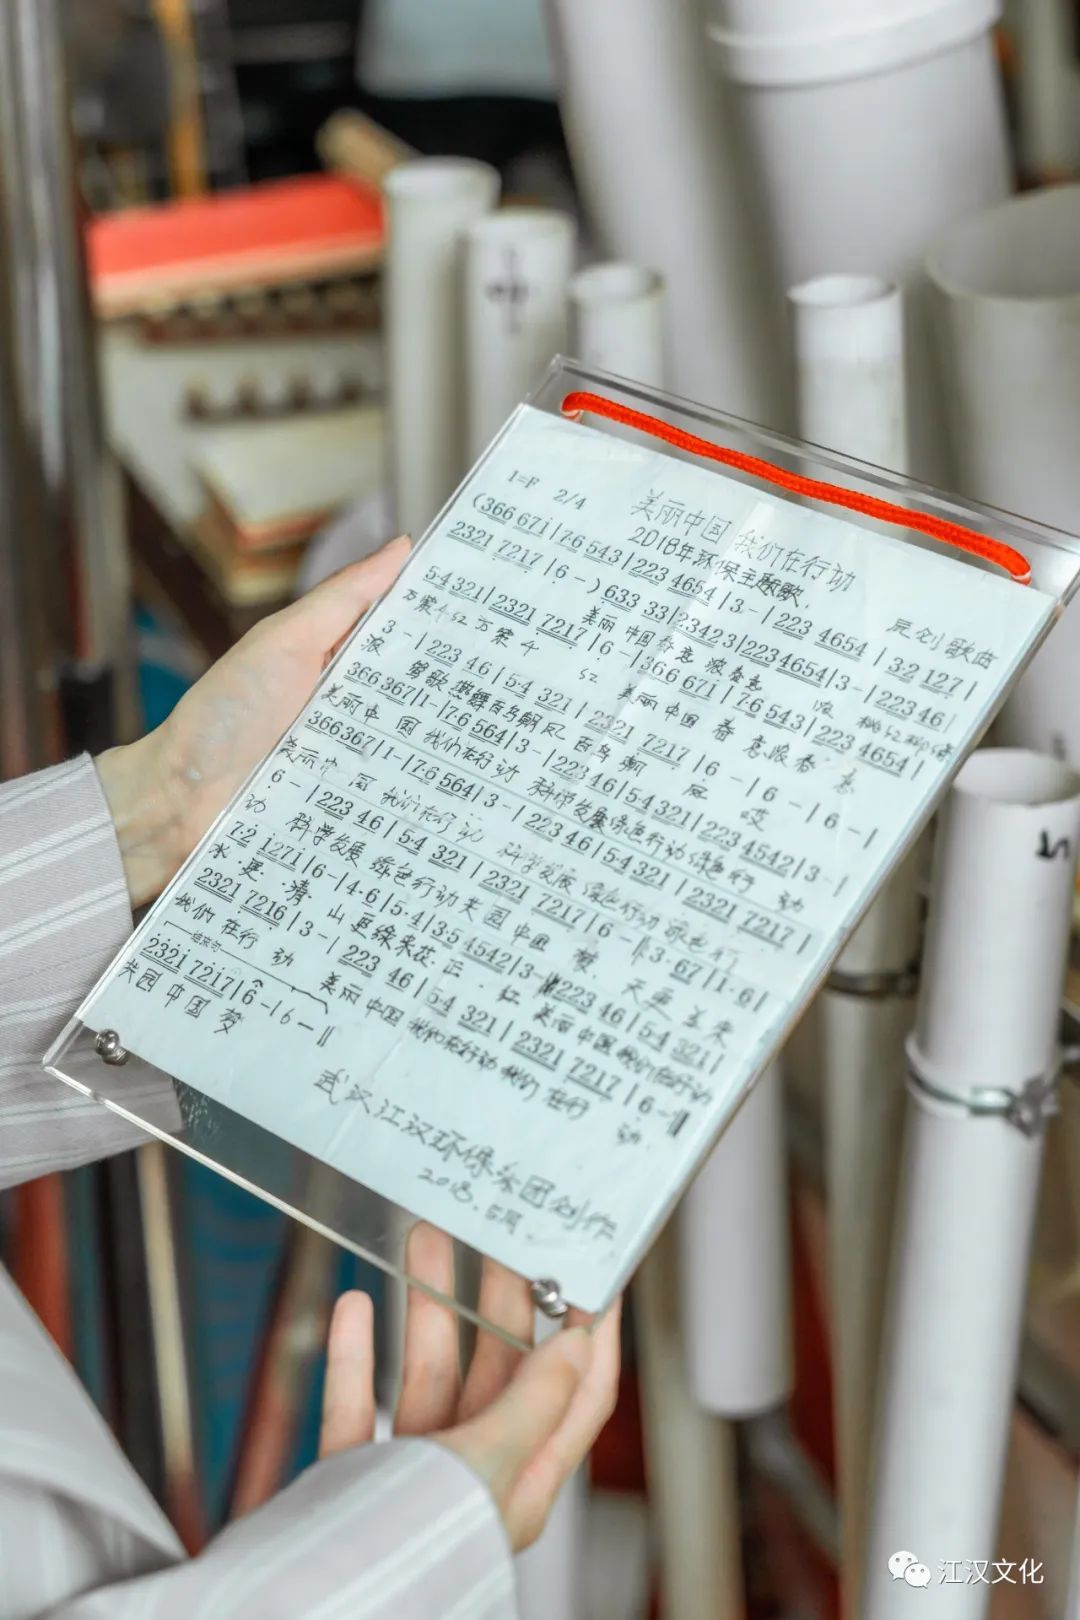 美丽中国 我们在行动
1=F 2/4
2018年环保主题歌
原创歌曲
(366 671|7·6 543|223 4654|3-|223 4654|3·2 127|
2321 7217|6-)633 33|2342 3|223 4654|3-|223 46|
美丽 中国春意 浓春意 浓 桃红柳绿
5·4 321|2321 7217|6-|366 671|7·6 543|223 4654|
万紫千红万紫千 红 美丽中国 春意浓春意
3-|223 46|5·4 321|2321 7217|6-|6-|6-|
浓 莺歌燕舞百鸟朝凤 百鸟朝凤 哎
366 367|1-|7·6 564|3-|223 46|5·4 321|223 4542|3-|
美丽中国 我们在行动 科学发展绿色行动绿色行动
366 367|1-|7·6 564|3-|223 46|5·4 321|2321 7217|
美丽中国 我们在行动 科学发展 绿色行动 绿色行
6-|223 46|5·4 321|2321 7217|6-|3·67|1·6|
动 科学发展 绿色行动共圆中国梦 天更蓝来
7·2 1271|6-|4·6|5·4|3·5 4542|3-|223 46|5·4 321|
水更清 山更绿来花正红 美丽中国我们在行动
2321 7216|3-|223 46|5·4 321|2321 7217|6-||
我们在行动 美丽中国 我们在行动我们在行动
结束句
2321 7217|6-|6-||
共圆中国梦
武汉江汉环保乐团创作
2018.5月.
中
江汉文化